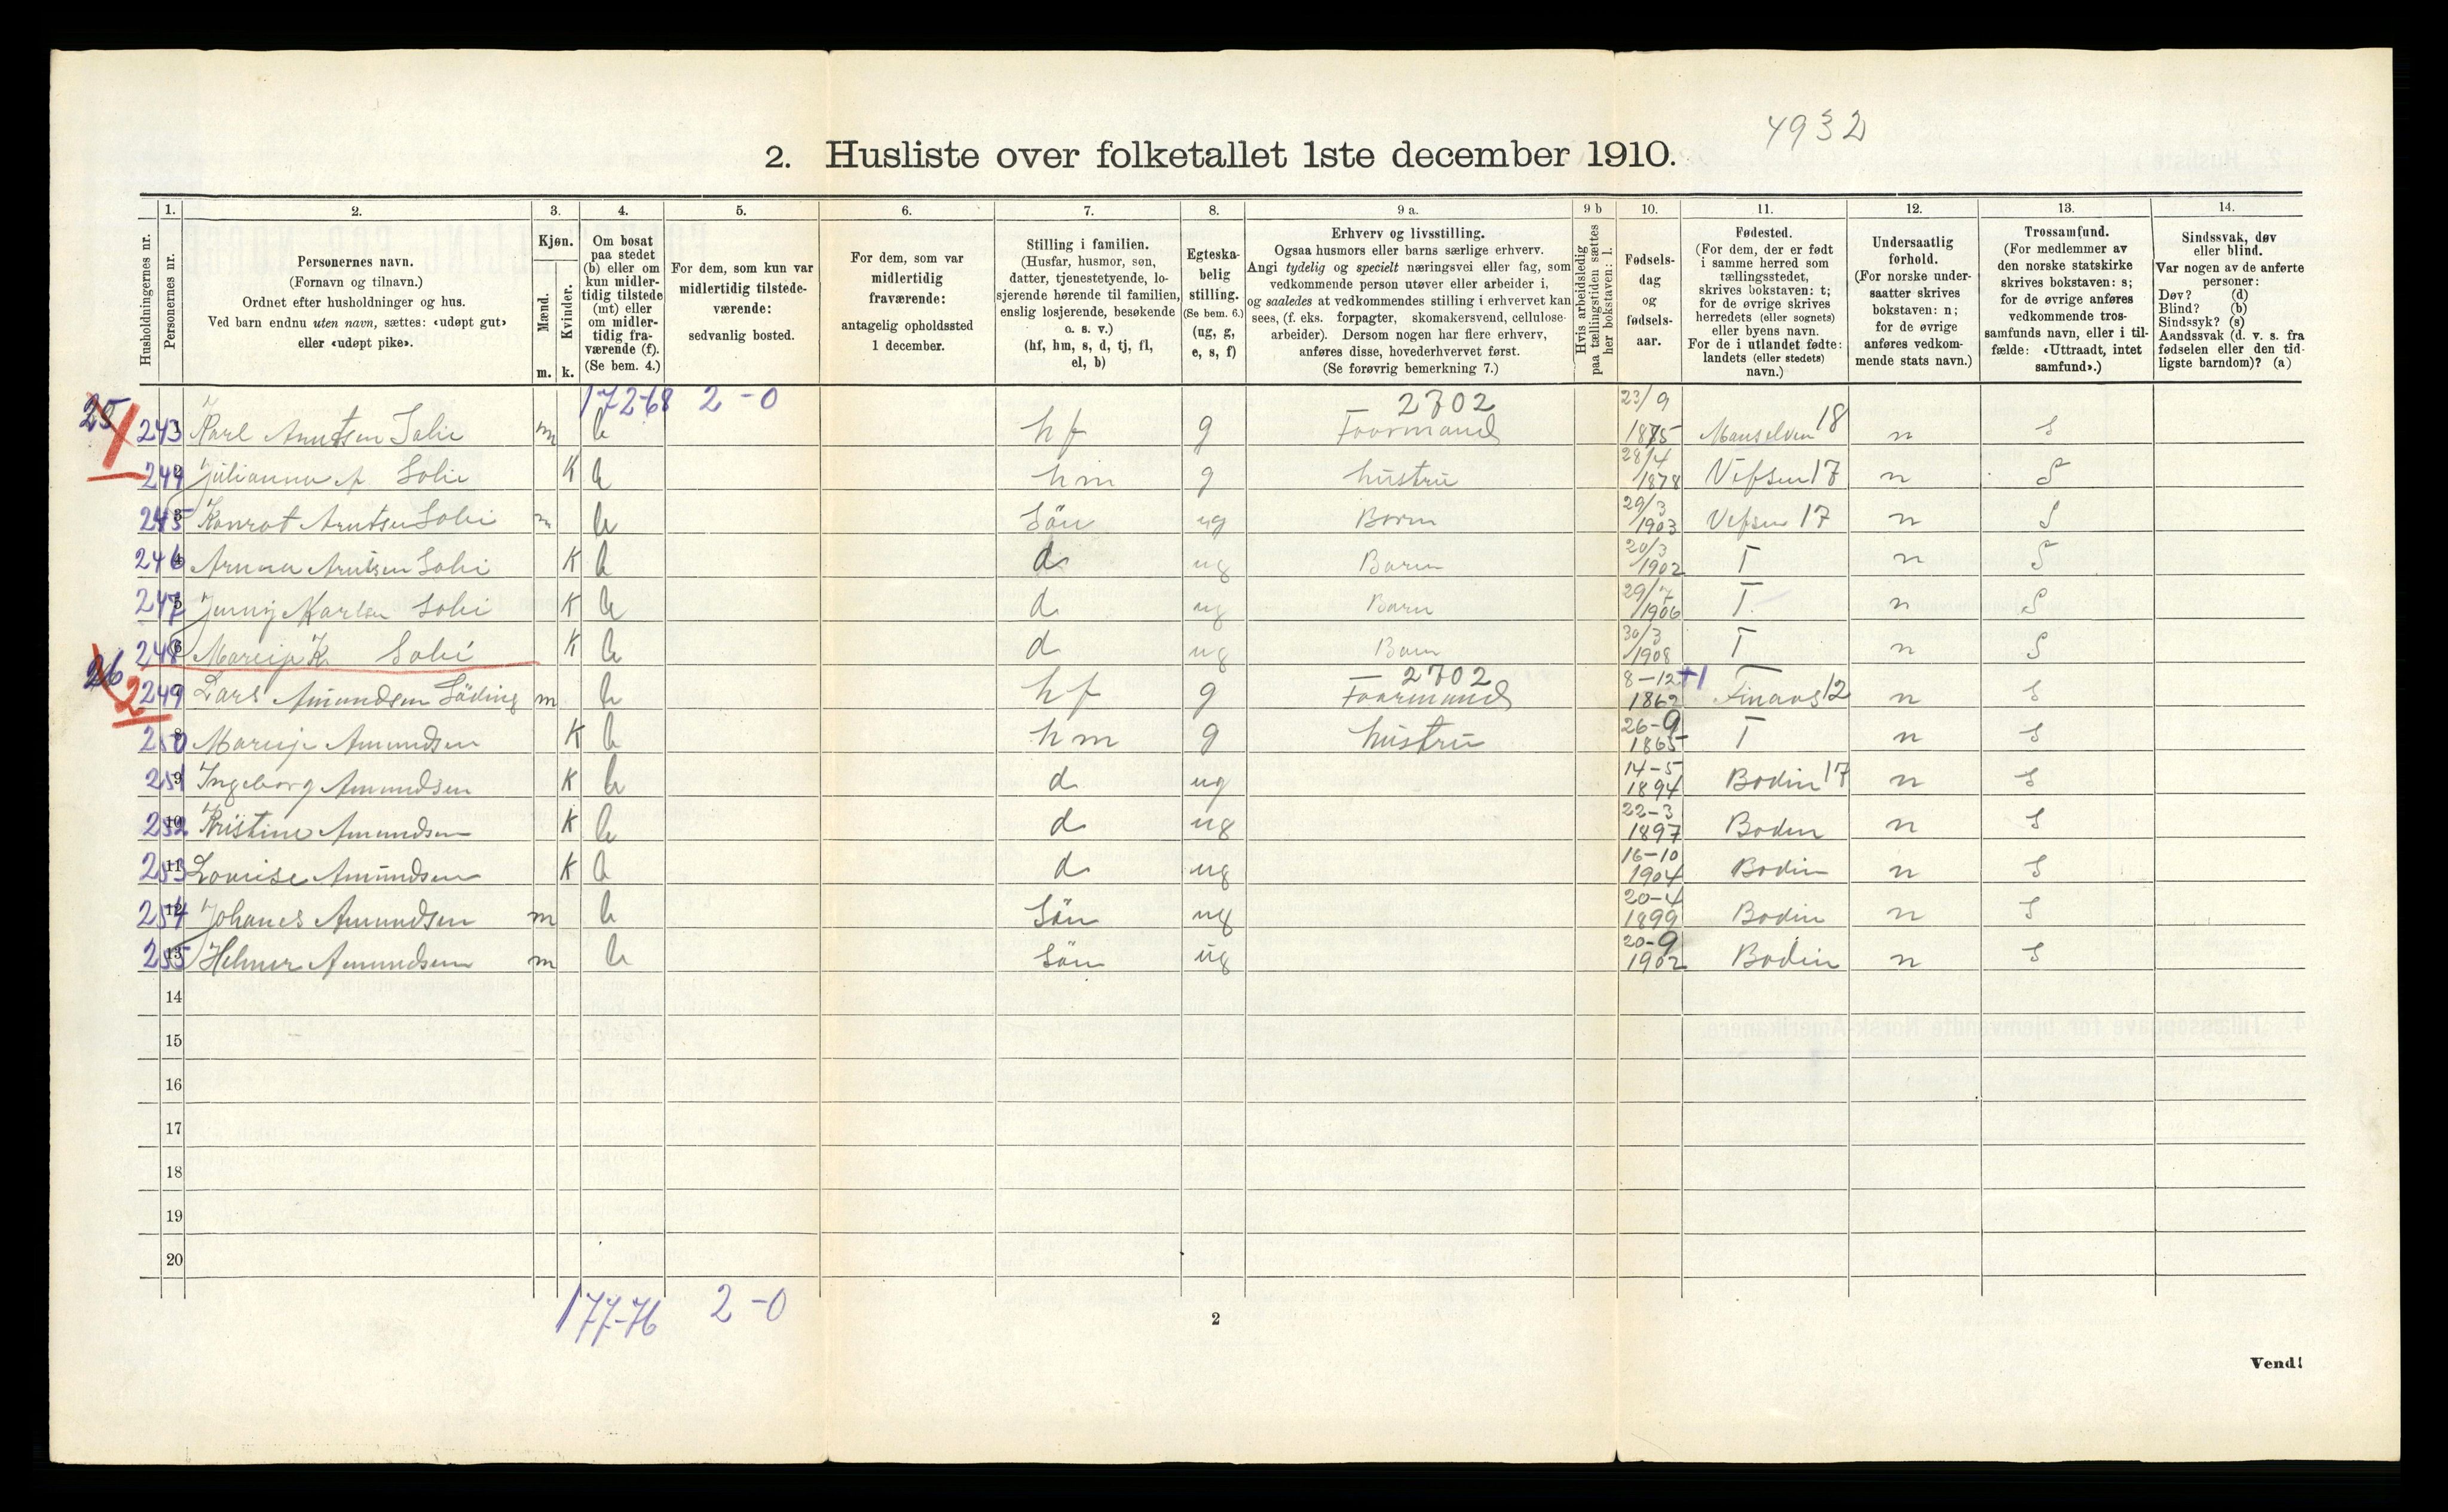 4932
2. Husliste over folketallet 1ste december 1910.
Husholdningernes nr.
1. Personernes nr.
2. Personernes navn. (Fornavn og tilnavn.) Ordnet efter husholdninger og hus. Ved barn endnu uten navn, sættes: «udøpt gut» eller «udøpt pike».
3. Kjøn. Mænd. m. Kvinder. k.
4. Om bosat paa stedet (b) eller om kun midler-tidig tilstede (mt) eller om midler-tidig fra-værende (f). (Se bem. 4.)
5. For dem, som kun var midlertidig tilstede-værende: sedvanlig bosted.
6. For dem, som var midlertidig fraværende: antagelig opholdssted 1 december.
7. Stilling i familien. (Husfar, husmor, søn, datter, tjenestetyende, lo-sjerende hørende til familien, enslig losjerende, besøkende o. s. v.) (hf, hm, s, d, tj, fl, el, b)
8. Egteska-belig stilling. (Se bem. 6.) (ug, g, e, s, f)
9 a. Erhverv og livsstilling. Ogsaa husmors eller barns særlige erhverv. Angi tydelig og specielt næringsvei eller fag, som vedkommende person utøver eller arbeider i, og saaledes at vedkommendes stilling i erhvervet kan sees, (f. eks. forpagter, skomakersvend, cellulose-arbeider). Dersom nogen har flere erhverv, anføres disse, hovederhvervet først. (Se forøvrig bemerkning 7.)
9 b Hvis arbeidsledig paa tællingstiden sættes her bokstaven: l.
10. Fødsels-dag og fødsels-aar.
11. Fødested. (For dem, der er født i samme herred som tællingsstedet, skrives bokstaven: t; for de øvrige skrives herredets (eller sognets) eller byens navn. For de i utlandet fødte: landets (eller stedets) navn.)
12. Undersaatlig forhold. (For norske under-saatter skrives bokstaven: n; for de øvrige anføres vedkom-mende stats navn.)
13. Trossamfund. (For medlemmer av den norske statskirke skrives bokstaven: s; for de øvrige anføres vedkommende tros-samfunds navn, eller i til-fælde: «Uttraadt, intet samfund».)
14. Sindssvak, døv eller blind. Var nogen av de anførte personer: Døv? (d) Blind? (b) Sindssyk? (s) Aandssvak (d. v. s. fra fødselen eller den tid-ligste barndom)? (a)
172-68 2-0
25 1 243 Karl Arntsen Solie m b hf g 2702 Formand 23/9 1875 18 n S
249 2 Julianna A Solie K b hm g hüstrü 28/4 1878 Vefsen 17 n S
245 3 Konrat Arntsen Solie m b Sön ug Barn 29/3 1903 Vefsen 17 n S
246 4 Arntsen Solie K b d ug Barn 20/3 1902 T n S
247 5 Jenny Karlsen Solie K b d ug Barn 29/7 1906 T. n S
248 6 K Solie K b d ug Barn 30/3 1908 T n S
26 2 249 Lars Amundsen Söding m b hf g 2702 8-12 1862 +1 12 n S
250 8 Amundsen K b hm g hüstrü 26-9 1865 T n S
251 9 Ingeborg Amundsen K b d ug 14-5 1894 Bodin 17 n S
252 10 Kristine Amundsen K b d ug 22-3 1897 Bodin n S
253 11 Lovise Amundsen K b d ug 16-10 1904 Bodin n S
254 12 Johanes Amundsen m b Sön ug 20-4 1899 Bodin n S
255 13 Helmer Amundsen m b Sön ug 20-9 1902 Bodin n S
14
15
16
17
18
19
20
177-76 2-0
2
Vend!